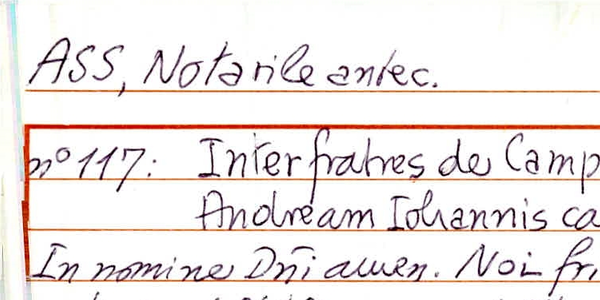 ASS, Notarile antec.
n° 117: Inter fratres de Camp
Andream Iohannis ca
In nomine Dñi amen. Noi fri